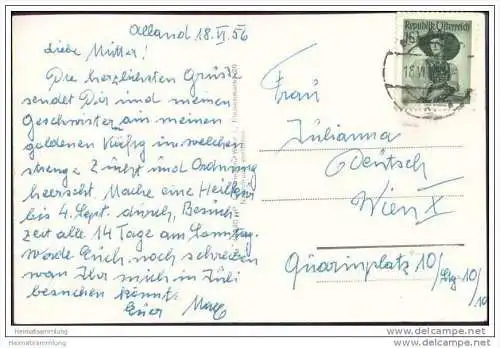 Alland 18.VI.56
Liebe Mutter!
Die herzlichsten Grüsse
sendet Dir und meinen
Geschwister aus meinen
goldenen Käfig in welchen
strenge Zucht und Ordnung
herrscht Mache eine Heilkur
bis 4. Sept. durch, Besuch
zeit alle 14 Tage am Samstag.
Werde Euch noch schreiben
wan Ihr mich in Juli
besuchen könnt.
Euer
Republik Österreich
18.VI
Frau
Julianna
Deutsch
Wien X
Quarinplatz 10/
Stg 10/
10
Heimatsammlung
Heimatsammlung
delcampe.net